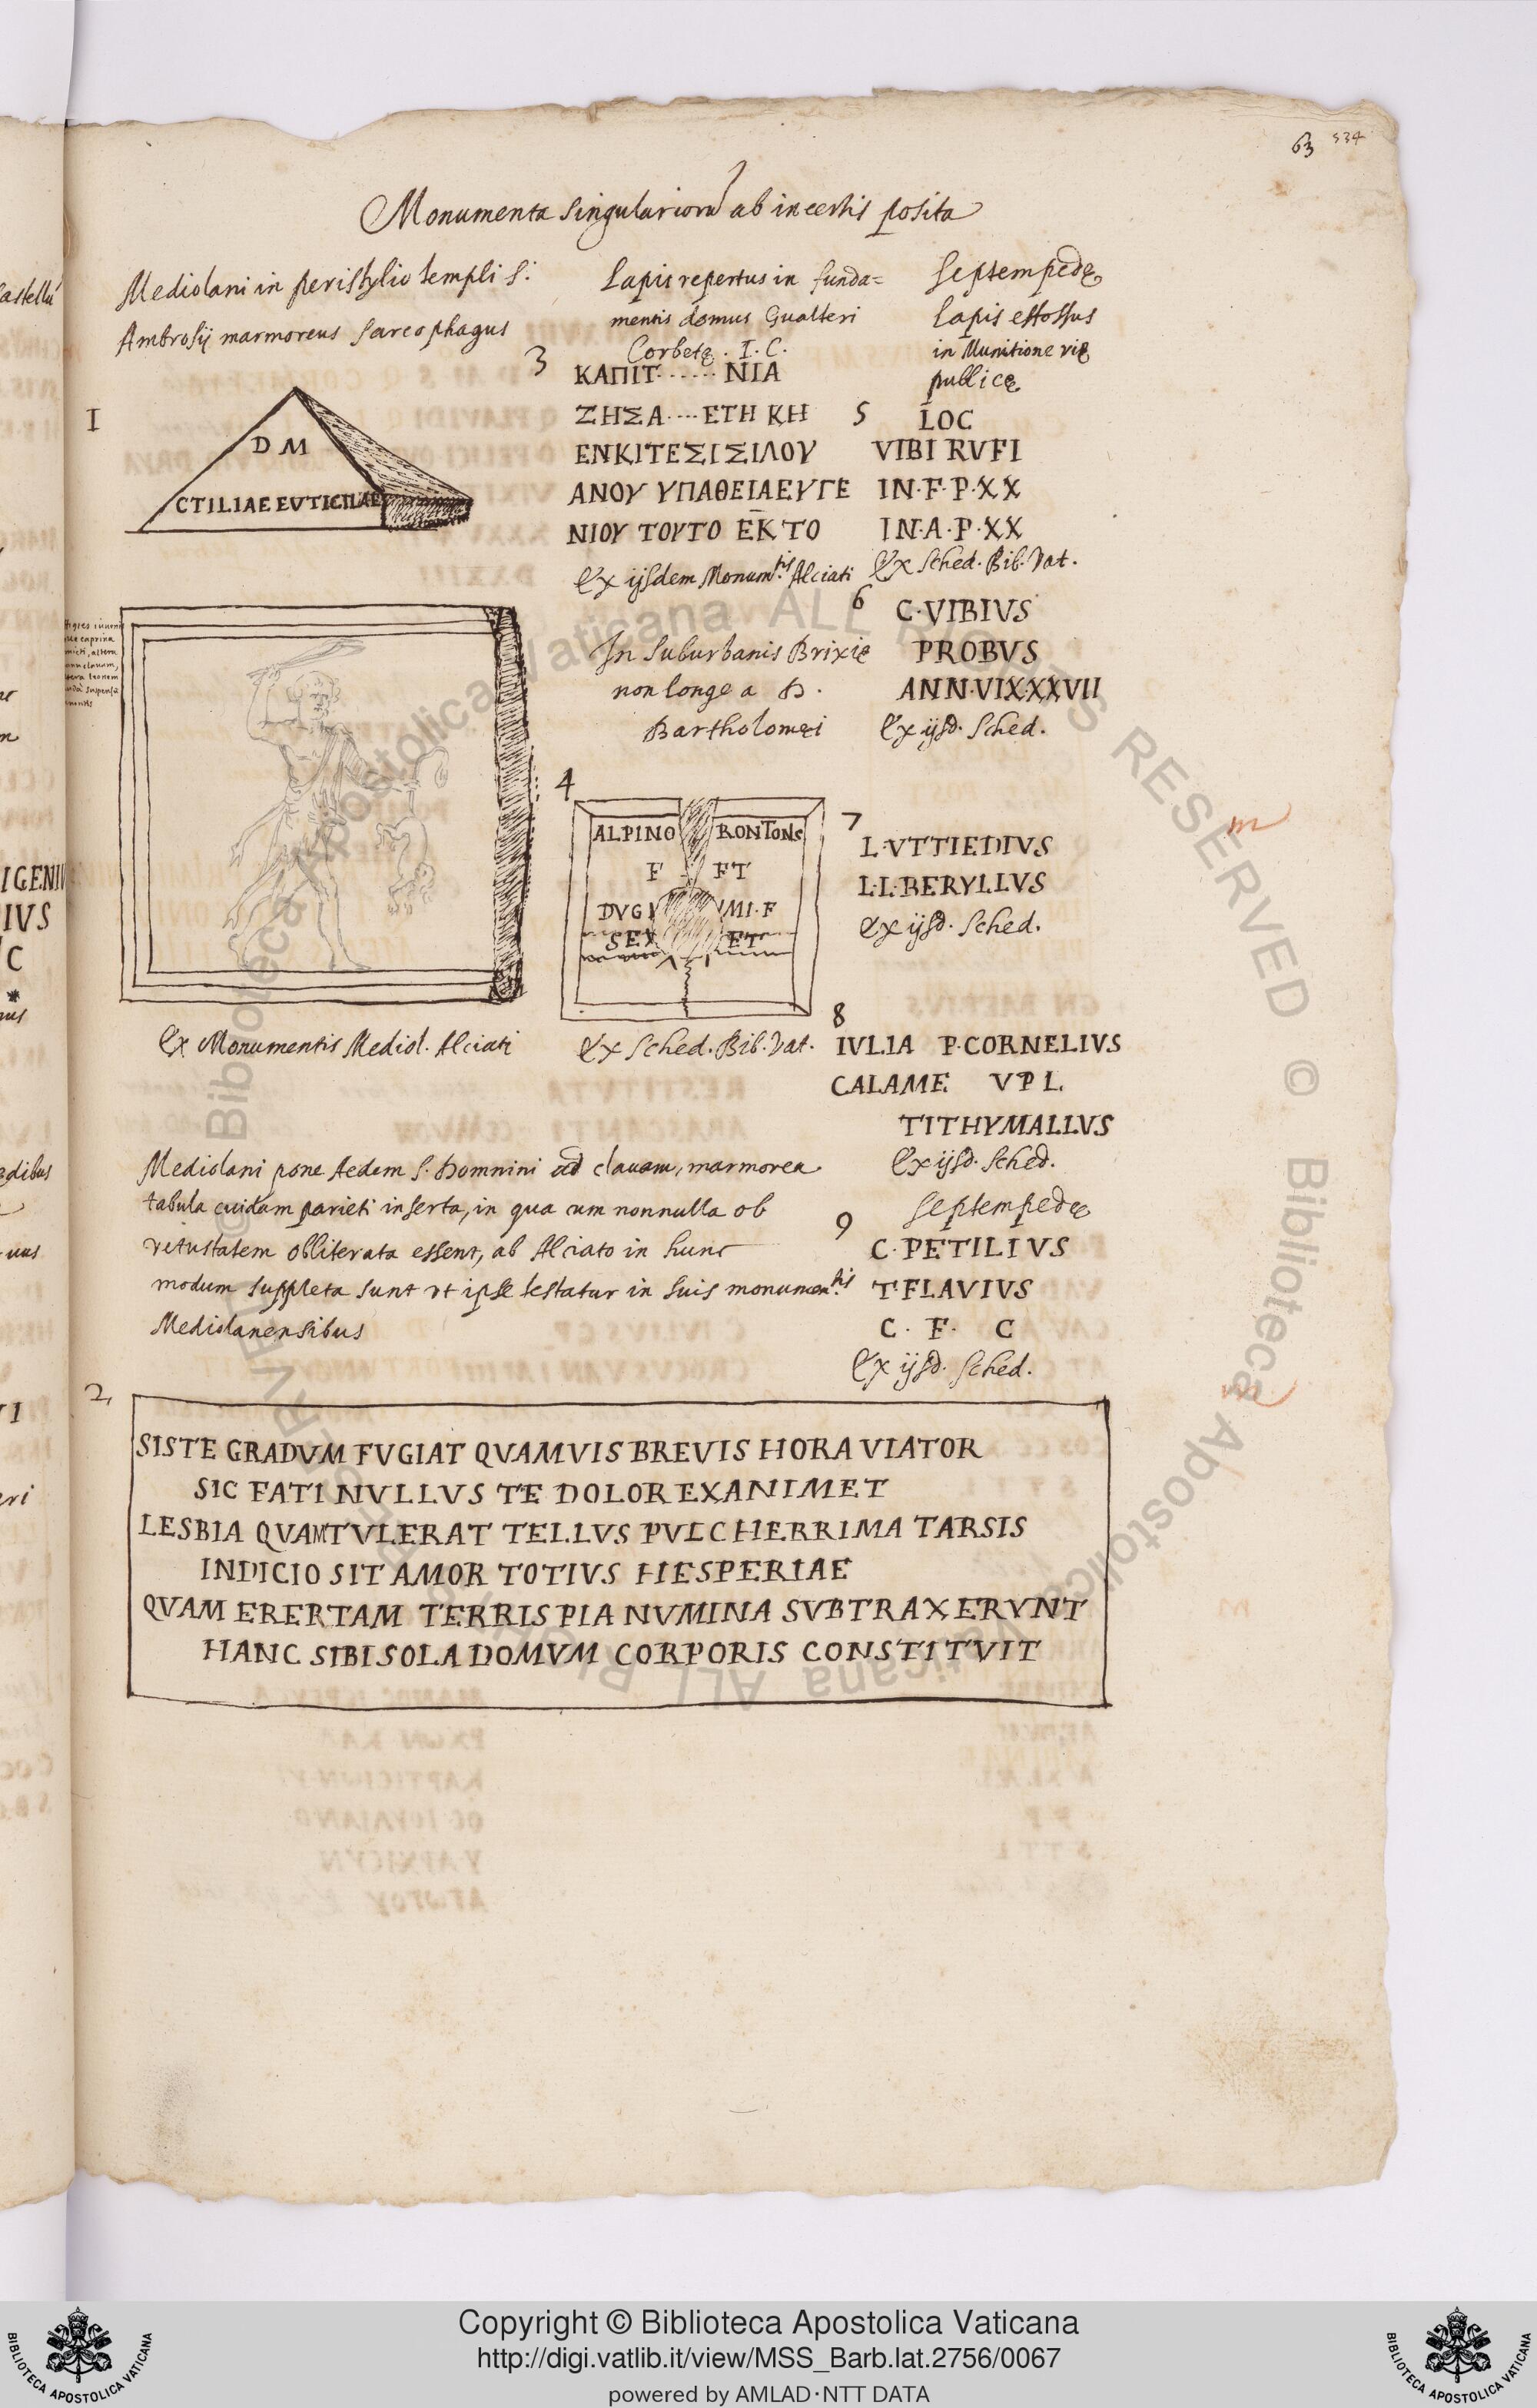 63 534
Monumenta singulariorũ ab incertis posita
Mediolani in peristylio templi S.
Ambrosij marmoreus sarcophagus
1
D M
CTILIAE EVTICILAE
Ex Monumentis Mediol. Alciati
Mediolani pone Aedem S. Domnini ad clavam, marmorea
tabula cuidam parieti inserta, in qua cum nonnulla ob
vetustatem obliterata essent, ab Alciato in hunc
modum suppleta sunt vt ipse testatur in suis monumen.tis
Mediolanensibus
2
SISTE GRADVM FVGIAT QVAMVIS BREVIS HORA VIATOR
SIC FATI NVLLVS TE DOLOR EXANIMET
LESBIA QVAMTVLERAT TELLVS PVLCHERRIMA TARSIS
INDICIO SIT AMOR TOTIVS HESPERIAE
QVAM ERERTAM TERRIS PIA NVMINA SVBTRAXERVNT
HANC SIBI SOLA DOMVM CORPORIS CONSTITVIT
Lapis repertus in funda=
mentis domus Gualteri
Corbetę. I. C.
3
ΚΑΠΙΤ······ΝΙΑ
ΖΗΣΑ····ΕΤΗ ΚΗ
ΕΝΚΙΤΕΣΙΣΙΛΟΥ
ΑΝΟΥ ΥΠΑΘΕΙΑΕΥΓΕ
ΝΙΟΥ ΤΟΥΤΟ ΕΚ ΤΟ
Ex ijsdem Monum.tis Alciati
In suburbanis Brixię
non longe a D.
Bartholomęi
4
ALPINO RONTONS
F FT
DVGI MI·F
SEX ET
Ex Sched. Bib. Vat.
Septempedę
Lapis effossus
in Munitione vię
publicę
5
LOC
VIBI RVFI
IN·F·P·XX
IN·A·P·XX
Ex Sched. Bib. Vat.
6
C·VIBIVS
PROBVS
ANN·VIX·XXVII
Ex ijsd. Sched.
7
L·VTTIEDIVS
L·L·BERYLLVS
Ex ijsd. Sched.
8
IVLIA P·CORNELIVS
CALAME V P L
TITHYMALLVS
Ex ijsd. Sched.
Septempedę
9
C·PETILIVS
T·FLAVIVS
C· F· C
Ex ijsd. Sched.
m
m
Copyright © Biblioteca Apostolica Vaticana
http://digi.vatlib.it/view/MSS_Barb.lat.2756/0067
powered by AMLAD·NTT DATA
BIBLIOTECA APOSTOLICA VATICANA
BIBLIOTECA APOSTOLICA VATICANA